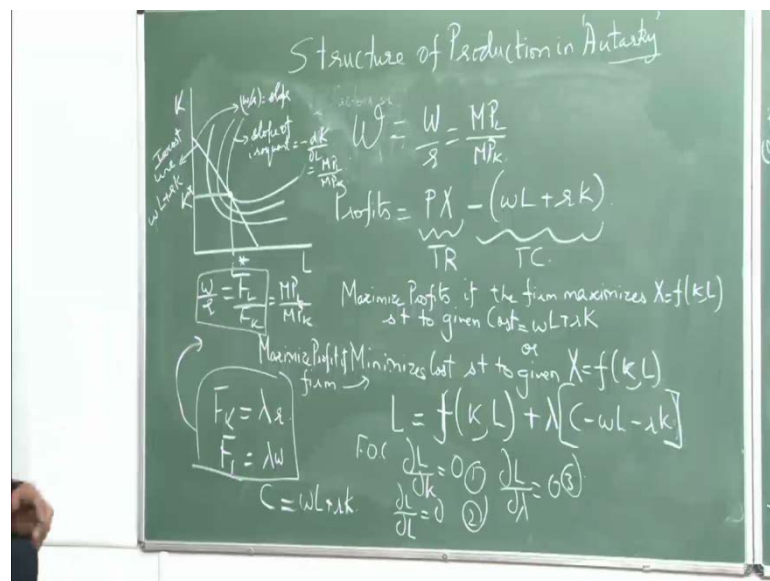 Structure of Production in 'Autarky'
K
(w/r) = slope
slope of
isoquant = -dK/dL
= MPL/MPK
Isocost
line
wL+rK
K*
L*
L
W = w/r = MPL/MPK
Profits = PX - (wL + rK)
TR TC
w/r = FL/FK = MPL/MPK
Maximize Profits if the firm maximizes X=f(K,L)
st to given Cost = wL+rK
or
Maximize Profit if Minimizes Cost st to given X=f(K,L)
firm →
FK = λr
FL = λw
C = wL+rK
L = f(K,L) + λ[C-wL-rK]
FOC ∂L/∂K = 0 ① ∂L/∂λ = 0 ③
∂L/∂L = 0 ②